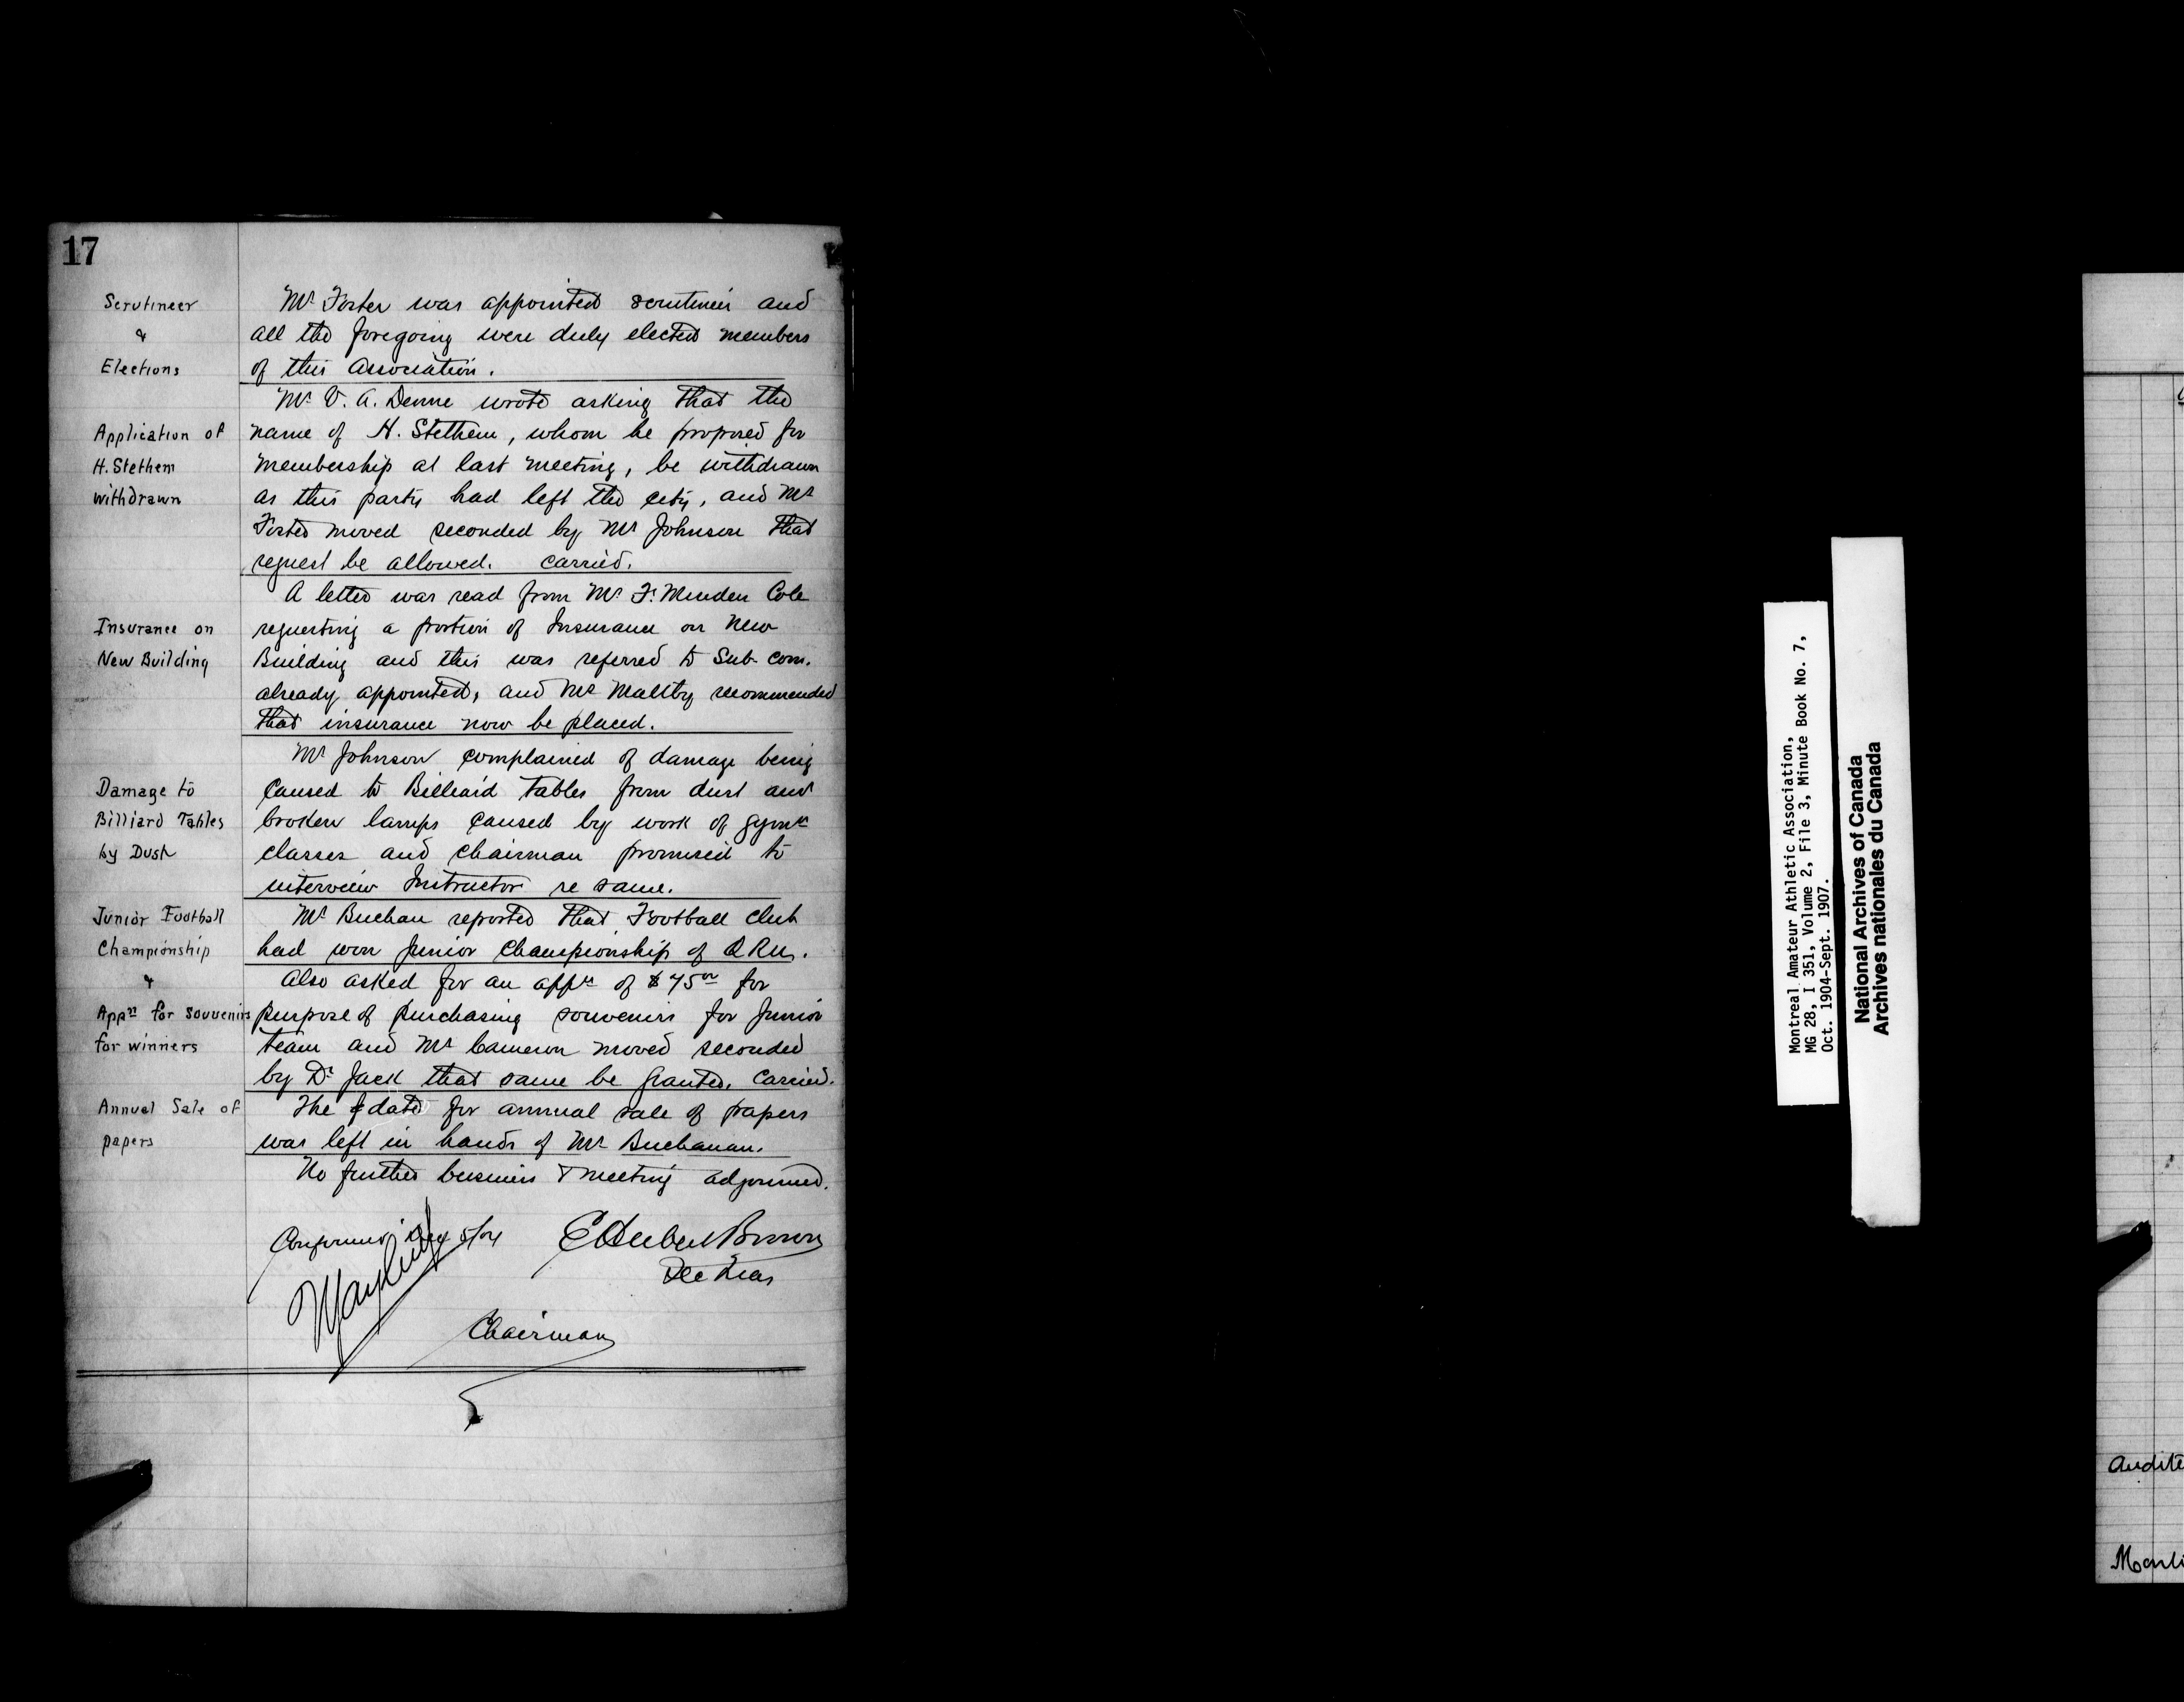 17
Scrutineer
&
Elections
Mr Foster was appointed scrutineer and
all the foregoing were duly elected members
of this Association.
Application of
H. Stethem
withdrawn
Mr V. A. Denne wrote asking that the
name of H. Stethem, whom he proposed for
membership at last meeting, be withdrawn
as this party had left the city, and Mr
Foster moved seconded by Mr Johnson that
request be allowed. carried.
Insurance on
New Building
A letter was read from Mr F. Minden Cole
requesting a portion of Insurance on New
Building and this was referred to Sub-com.
already appointed, and Mr Maltby recommended
that insurance now be placed.
Damage to
Billiard Tables
by Dust
Mr Johnson complained of damage being
caused to Billiard tables from dust and
broken lamps caused by work of gymn
classes and chairman promised to
interview Instructor re same.
Junior Football
Championship
&
Appn for souvenirs
for winners
Mr Buchan reported that Football club
had won Junior Championship of Q R U.
Also asked for an appn of $ 75 00 for
purpose of purchasing souvenirs for Junior
team and Mr Cameron moved seconded
by Dr Jack that same be granted. Carried.
Annual Sale of
papers
The date for annual sale of papers
was left in hands of Mr Buchanan.
No further business & meeting adjourned.
Confirmed Dec 5/04
E Herbert Brown
Sec Treas
Chairman
Montreal Amateur Athletic Association,
MG 28, I 351, Volume 2, File 3, Minute Book No. 7,
Oct. 1904-Sept. 1907.
National Archives of Canada
Archives nationales du Canada